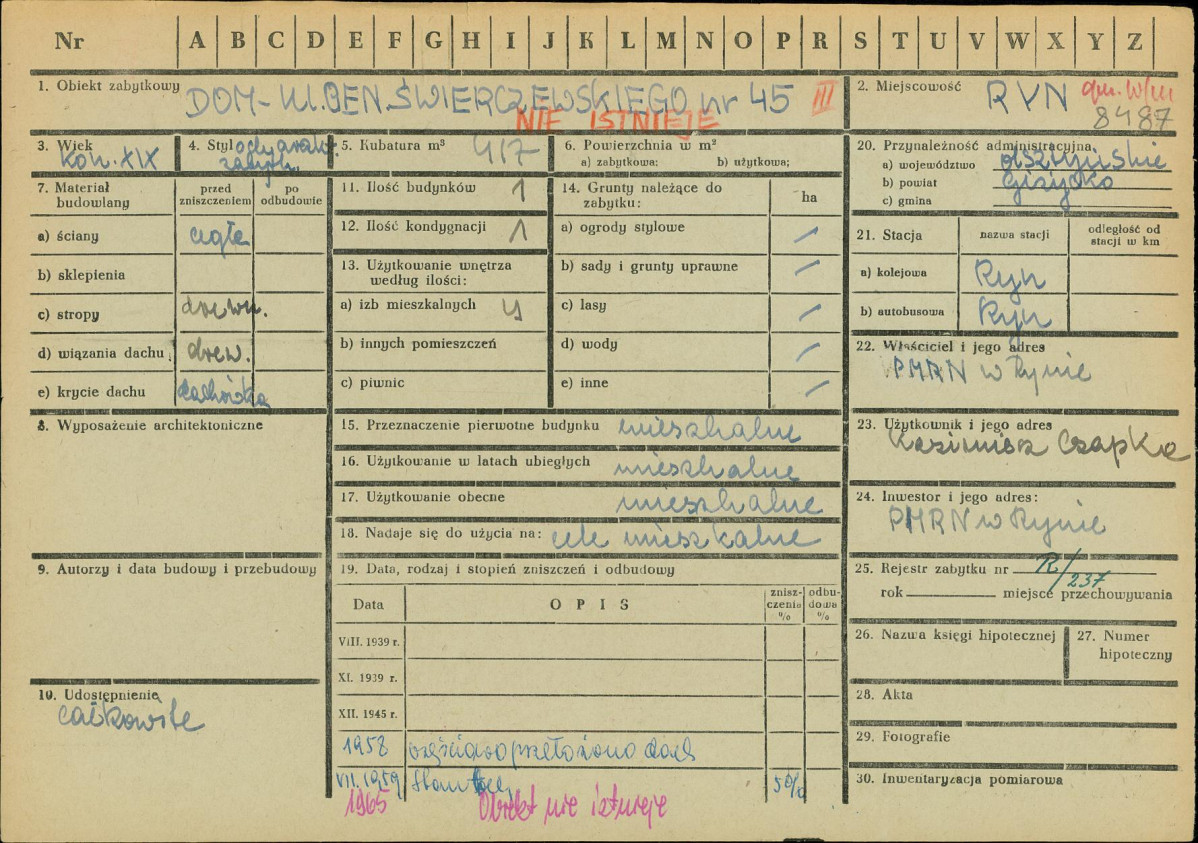 Nr A B C D E F G H I J K L M N O P R S T U V W X Y Z
1. Obiekt zabytkowy DOM - Ul. GEN. ŚWIERCZEWSKIEGO nr 45 III
NIE ISTNIEJE
2. Miejscowość RYN
8487
3. Wiek
kon. XIX
4. Styl
5. Kubatura m³ 417
6. Powierzchnia w m²
a) zabytkowa: b) użytkowa;
7. Materiał budowlany
przed zniszczeniem
po odbudowie
a) ściany cegła
b) sklepienia
c) stropy drewn.
d) wiązania dachu drew.
e) krycie dachu dachówka
8. Wyposażenie architektoniczne
9. Autorzy i data budowy i przebudowy
10. Udostępnienie
całkowite
11. Ilość budynków 1
12. Ilość kondygnacji 1
13. Użytkowanie wnętrza
według ilości:
a) izb mieszkalnych 4
b) innych pomieszczeń
c) piwnic
14. Grunty należące do
zabytku:
ha
a) ogrody stylowe /
b) sady i grunty uprawne /
c) lasy /
d) wody /
e) inne /
15. Przeznaczenie pierwotne budynku mieszkalne
16. Użytkowanie w latach ubiegłych mieszkalne
17. Użytkowanie obecne mieszkalne
18. Nadaje się do użycia na: cele mieszkalne
19. Data, rodzaj i stopień zniszczeń i odbudowy
Data
OPIS
znisz-
czenia
%
odbu-
dowa
%
VIII. 1939 r.
XI. 1939 r.
XII. 1945 r.
1958 częściowo przełożono dach
VII. 1959
1965 Obiekt nie istnieje
20. Przynależność administracyjna
a) województwo olsztyńskie
b) powiat Giżycko
c) gmina
21. Stacja
nazwa stacji
odległość od
stacji w km
a) kolejowa Ryn
b) autobusowa Ryn
22. Właściciel i jego adres
PMRN w Rynie
23. Użytkownik i jego adres
Kazimierz Czapka
24. Inwestor i jego adres:
PMRN w Rynie
25. Rejestr zabytku nr R/237
rok miejsce przechowywania
26. Nazwa księgi hipotecznej
27. Numer
hipoteczny
28. Akta
29. Fotografie
30. Inwentaryzacja pomiarowa